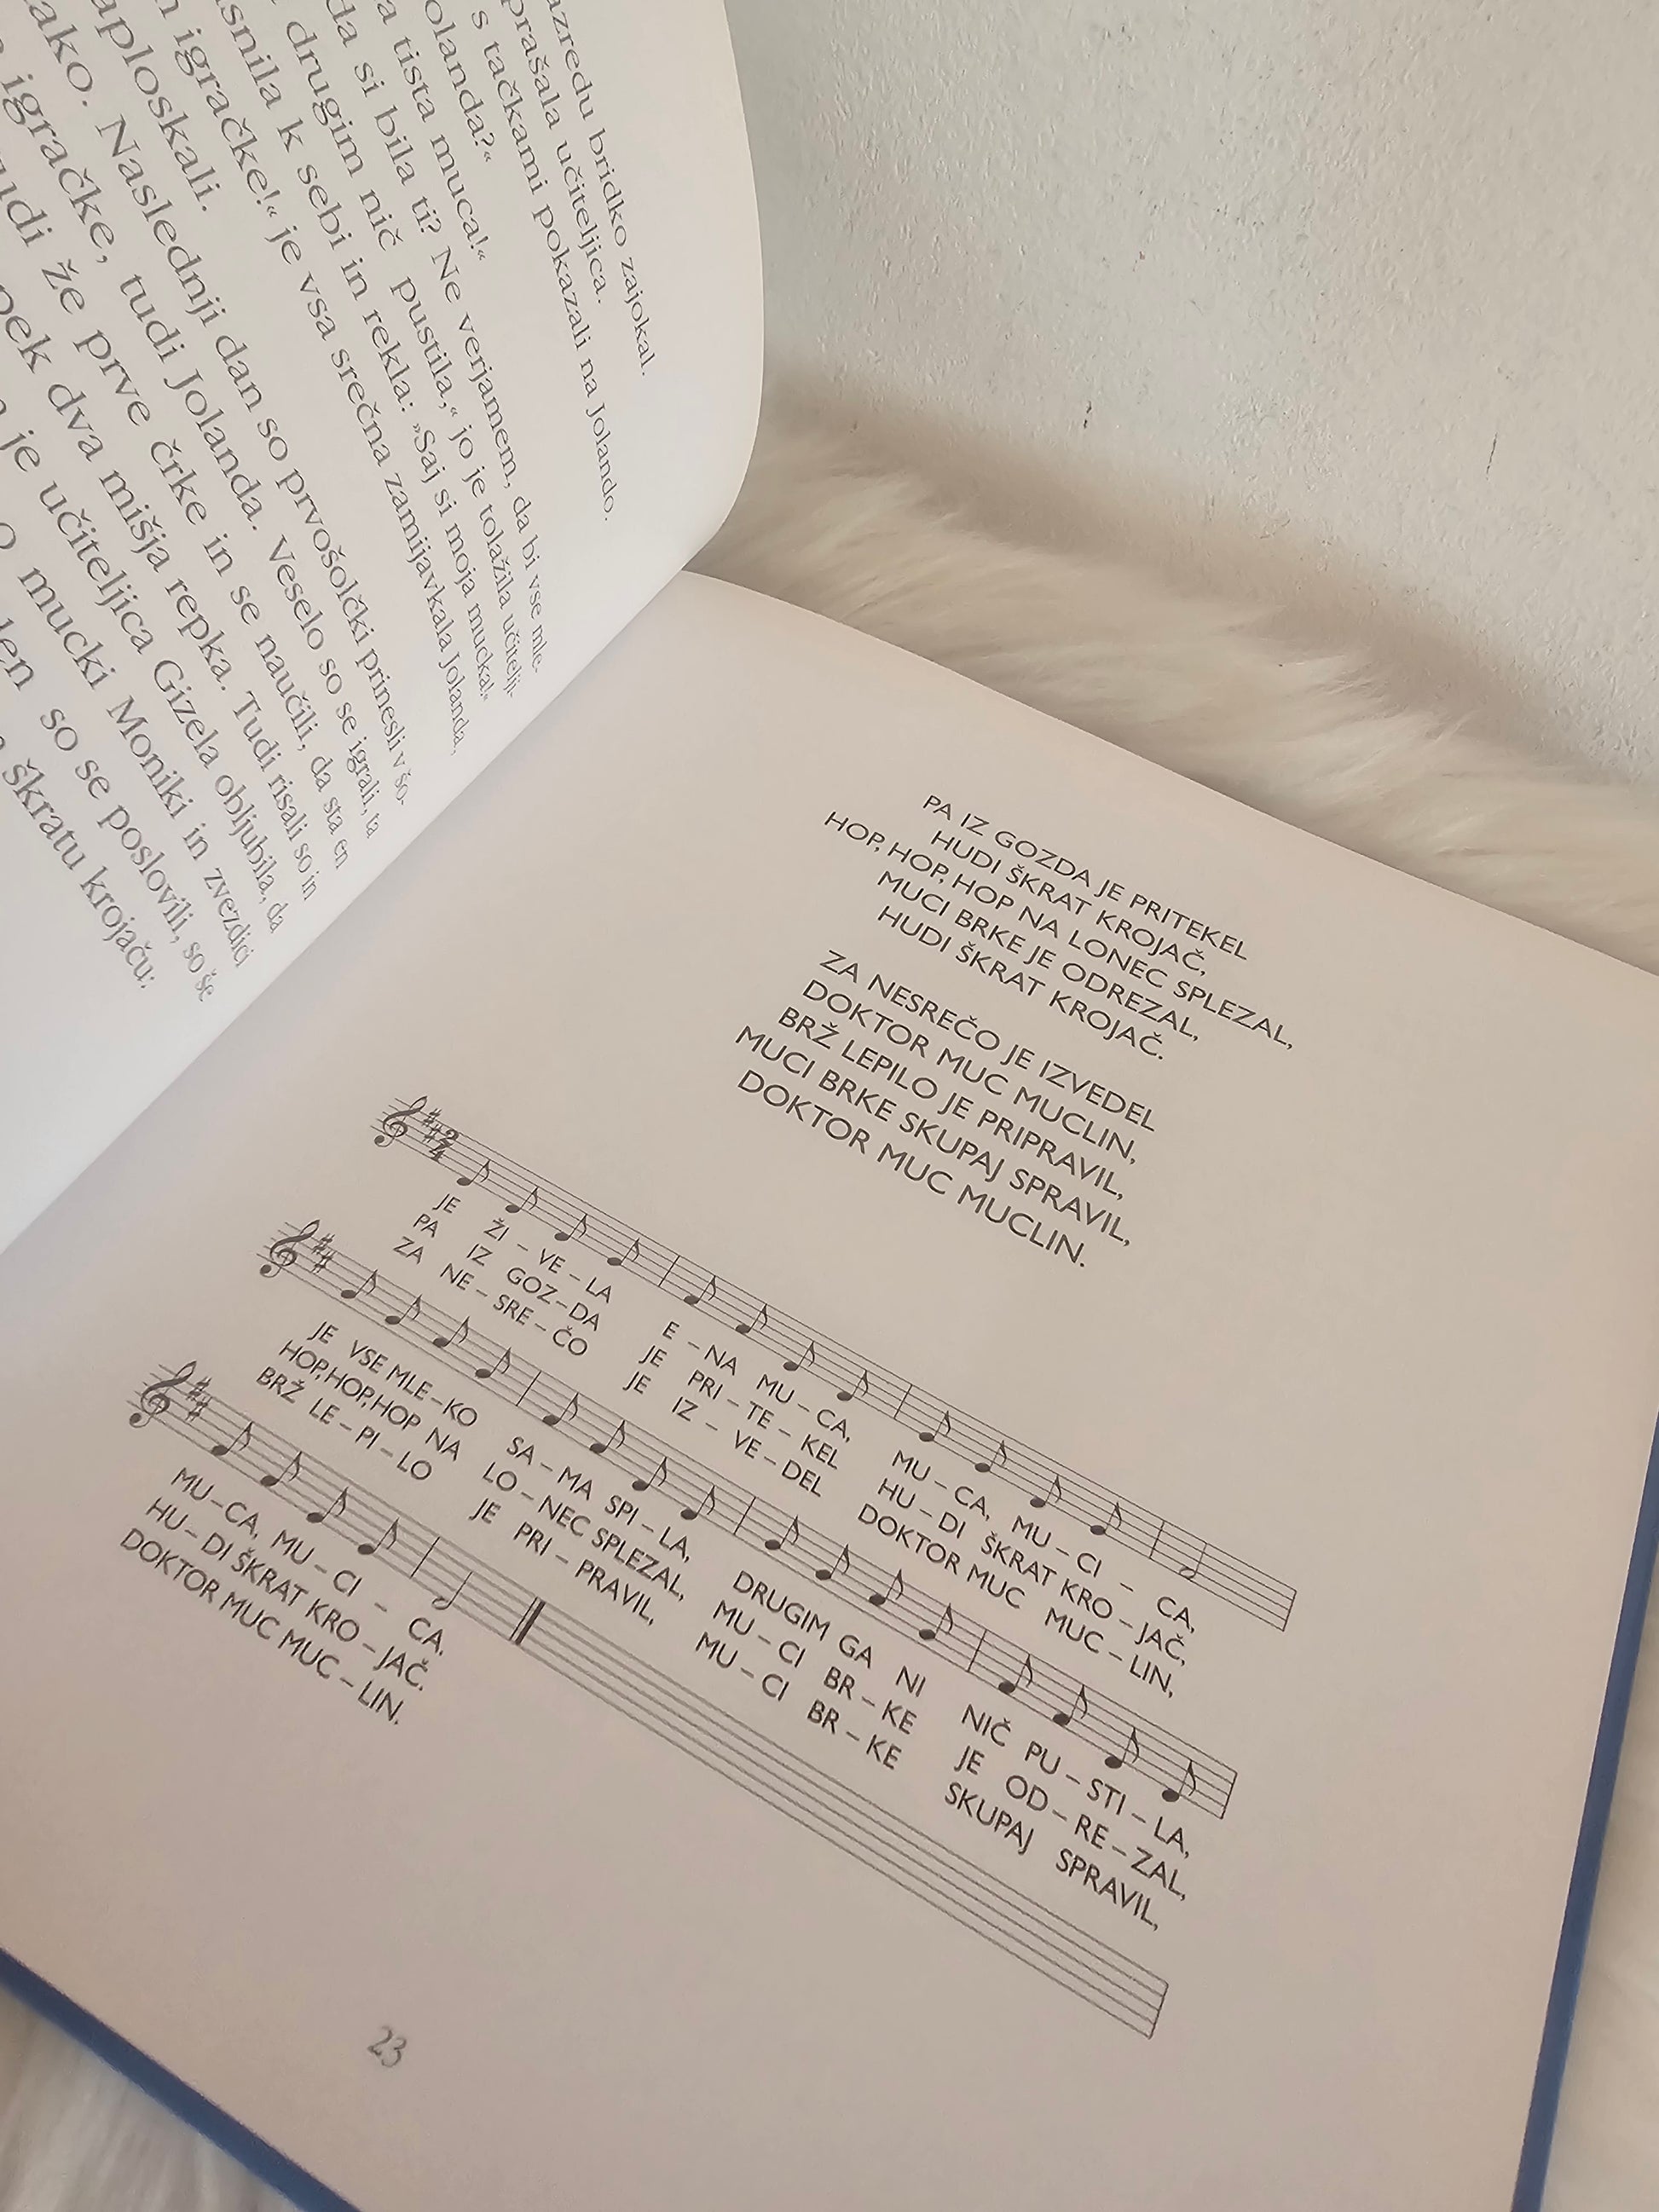 azredu bridko zajokal.
prašala učiteljica.
s tačkami pokazali na Jolando.
olanda?«
a tista muca!«
da si bila ti? Ne verjamem, da bi vse mle-
drugim nič pustila,« jo je tolažila učitelji-
snila k sebi in rekla: »Saj si moja mucka!«
igračke!« je vsa srečna zamijavkala Jolanda,
aploskali.
ako. Naslednji dan so prvošolčki prinesli v šo-
igračke, tudi Jolanda. Veselo so se igrali, ta
udi že prve črke in se naučili, da sta en
pek dva mišja repka. Tudi risali so in
je učiteljica Gizela obljubila, da
o mucki Moniki in zvezdici
den so se poslovili, so še
škratu krojaču:
PA IZ GOZDA JE PRITEKEL
HUDI ŠKRAT KROJAČ,
HOP, HOP, HOP NA LONEC SPLEZAL,
MUCI BRKE JE ODREZAL,
HUDI ŠKRAT KROJAČ.
ZA NESREČO JE IZVEDEL
DOKTOR MUC MUCLIN,
BRŽ LEPILO JE PRIPRAVIL,
MUCI BRKE SKUPAJ SPRAVIL,
DOKTOR MUC MUCLIN.
2
4
JE ŽI – VE – LA E – NA MU – CA, MU – CA, MU – CI – CA,
PA IZ GOZ–DA JE PRI – TE – KEL HU – DI ŠKRAT KRO – JAČ,
ZA NE – SRE – ČO JE IZ – VE – DEL DOKTOR MUC MUC – LIN,
JE VSE MLE–KO SA – MA SPI – LA, DRUGIM GA NI NIČ PU – STI – LA,
HOP,HOP,HOP NA LO – NEC SPLEZAL, MU – CI BR – KE JE OD – RE – ZAL,
BRŽ LE – PI – LO JE PRI – PRAVIL, MU – CI BR – KE SKUPAJ SPRAVIL,
MU–CA, MU – CI – CA.
HU – DI ŠKRAT KRO – JAČ.
DOKTOR MUC MUC – LIN.
23